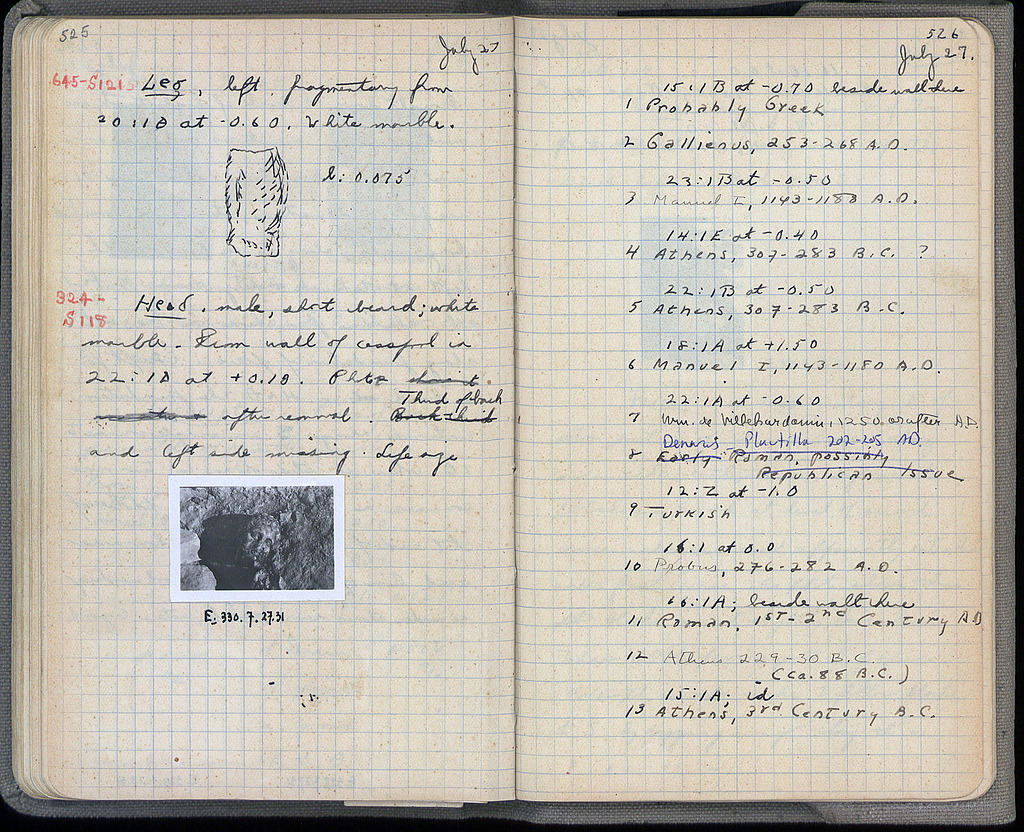 525
July 27
645-S121 Leg, left, fragmentary from
20:1B at -0.60. White marble.
l: 0.075
324-
S118
Head, male, short beard; white
marble. From wall of cesspool in
22:1B at +0.10.
after removal. Third of back
and left side missing. Life age
E: 330. 7. 27.31
526
July 27.
15:1B at -0.70 beside wall there
1 Probably Greek
2 Gallienus, 253-268 A.D.
23:1B at -0.50
3 Manuel I, 1143-1180 A.D.
14:1E at -0.40
4 Athens, 307-283 B.C. ?
22:1B at -0.50
5 Athens, 307-283 B.C.
18:1A at +1.50
6 Manuel I, 1143-1180 A.D.
22:1A at -0.60
7 Wm. de Villehardouin, 1250 or after AD.
Denarius Plautilla 202-205 AD.
8 Early Roman, possibly
Republican Issue
12:Z at -1.0
9 Turkish
16:1 at 0.0
10 Probus, 276-282 A.D.
16:1A; beside wall there
11 Roman, 1st-2nd Century AD
12 Athens 229-30 B.C.
(ca. 88 B.C.)
15:1A; id
13 Athens, 3rd Century B.C.